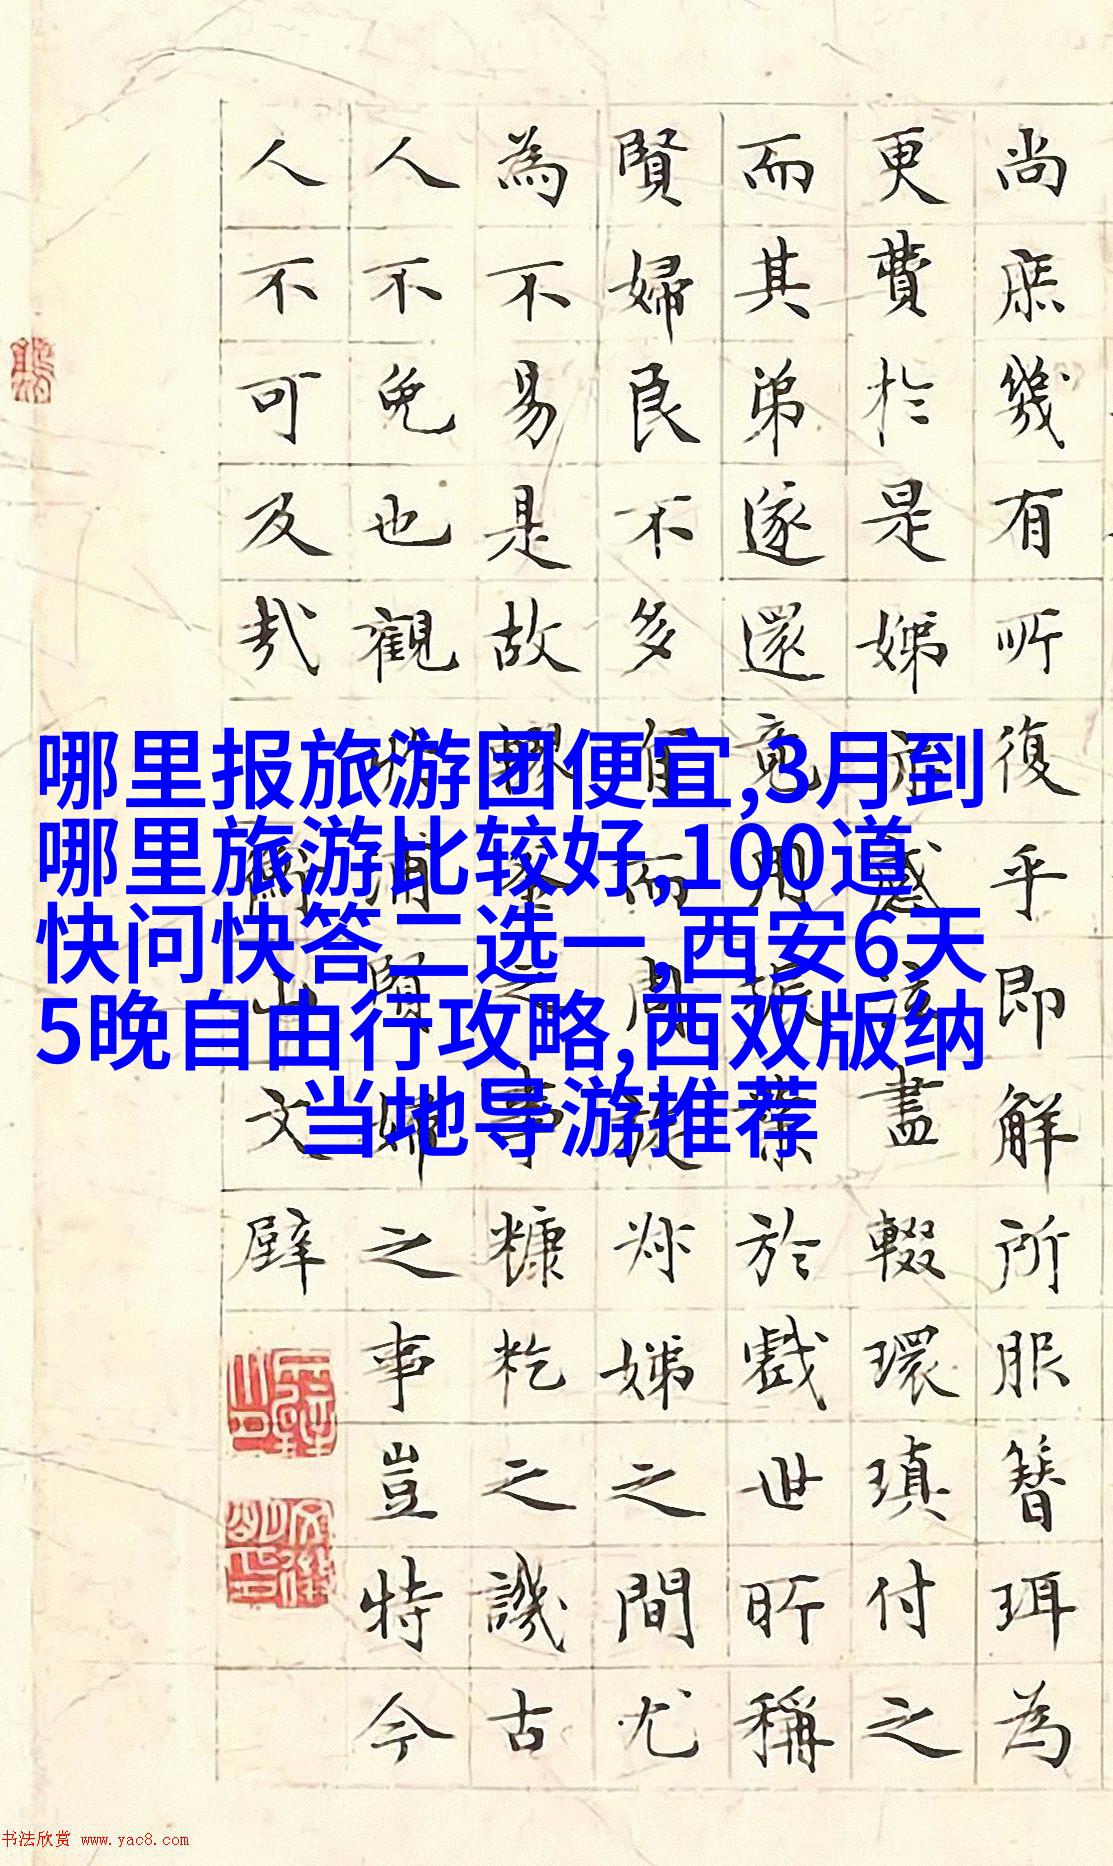 哪里报旅游团便宜,3月到
哪里旅游比较好,100道
快问快答二选一,西安6天
5晚自由行攻略,西双版纳
当地导游推荐
尚庶幾有所復乎即解所服簪珥為
更費於是娣感盡輟環瑱付之
而其弟遂還竟用振業於戲世所稱
賢婦良不多而間族娣之間尤
為不易是故之事糠籺之譏古
人不免也觀婦之事豈特今
人不可及哉
衡山文璧
书法欣赏 www.yac8.com